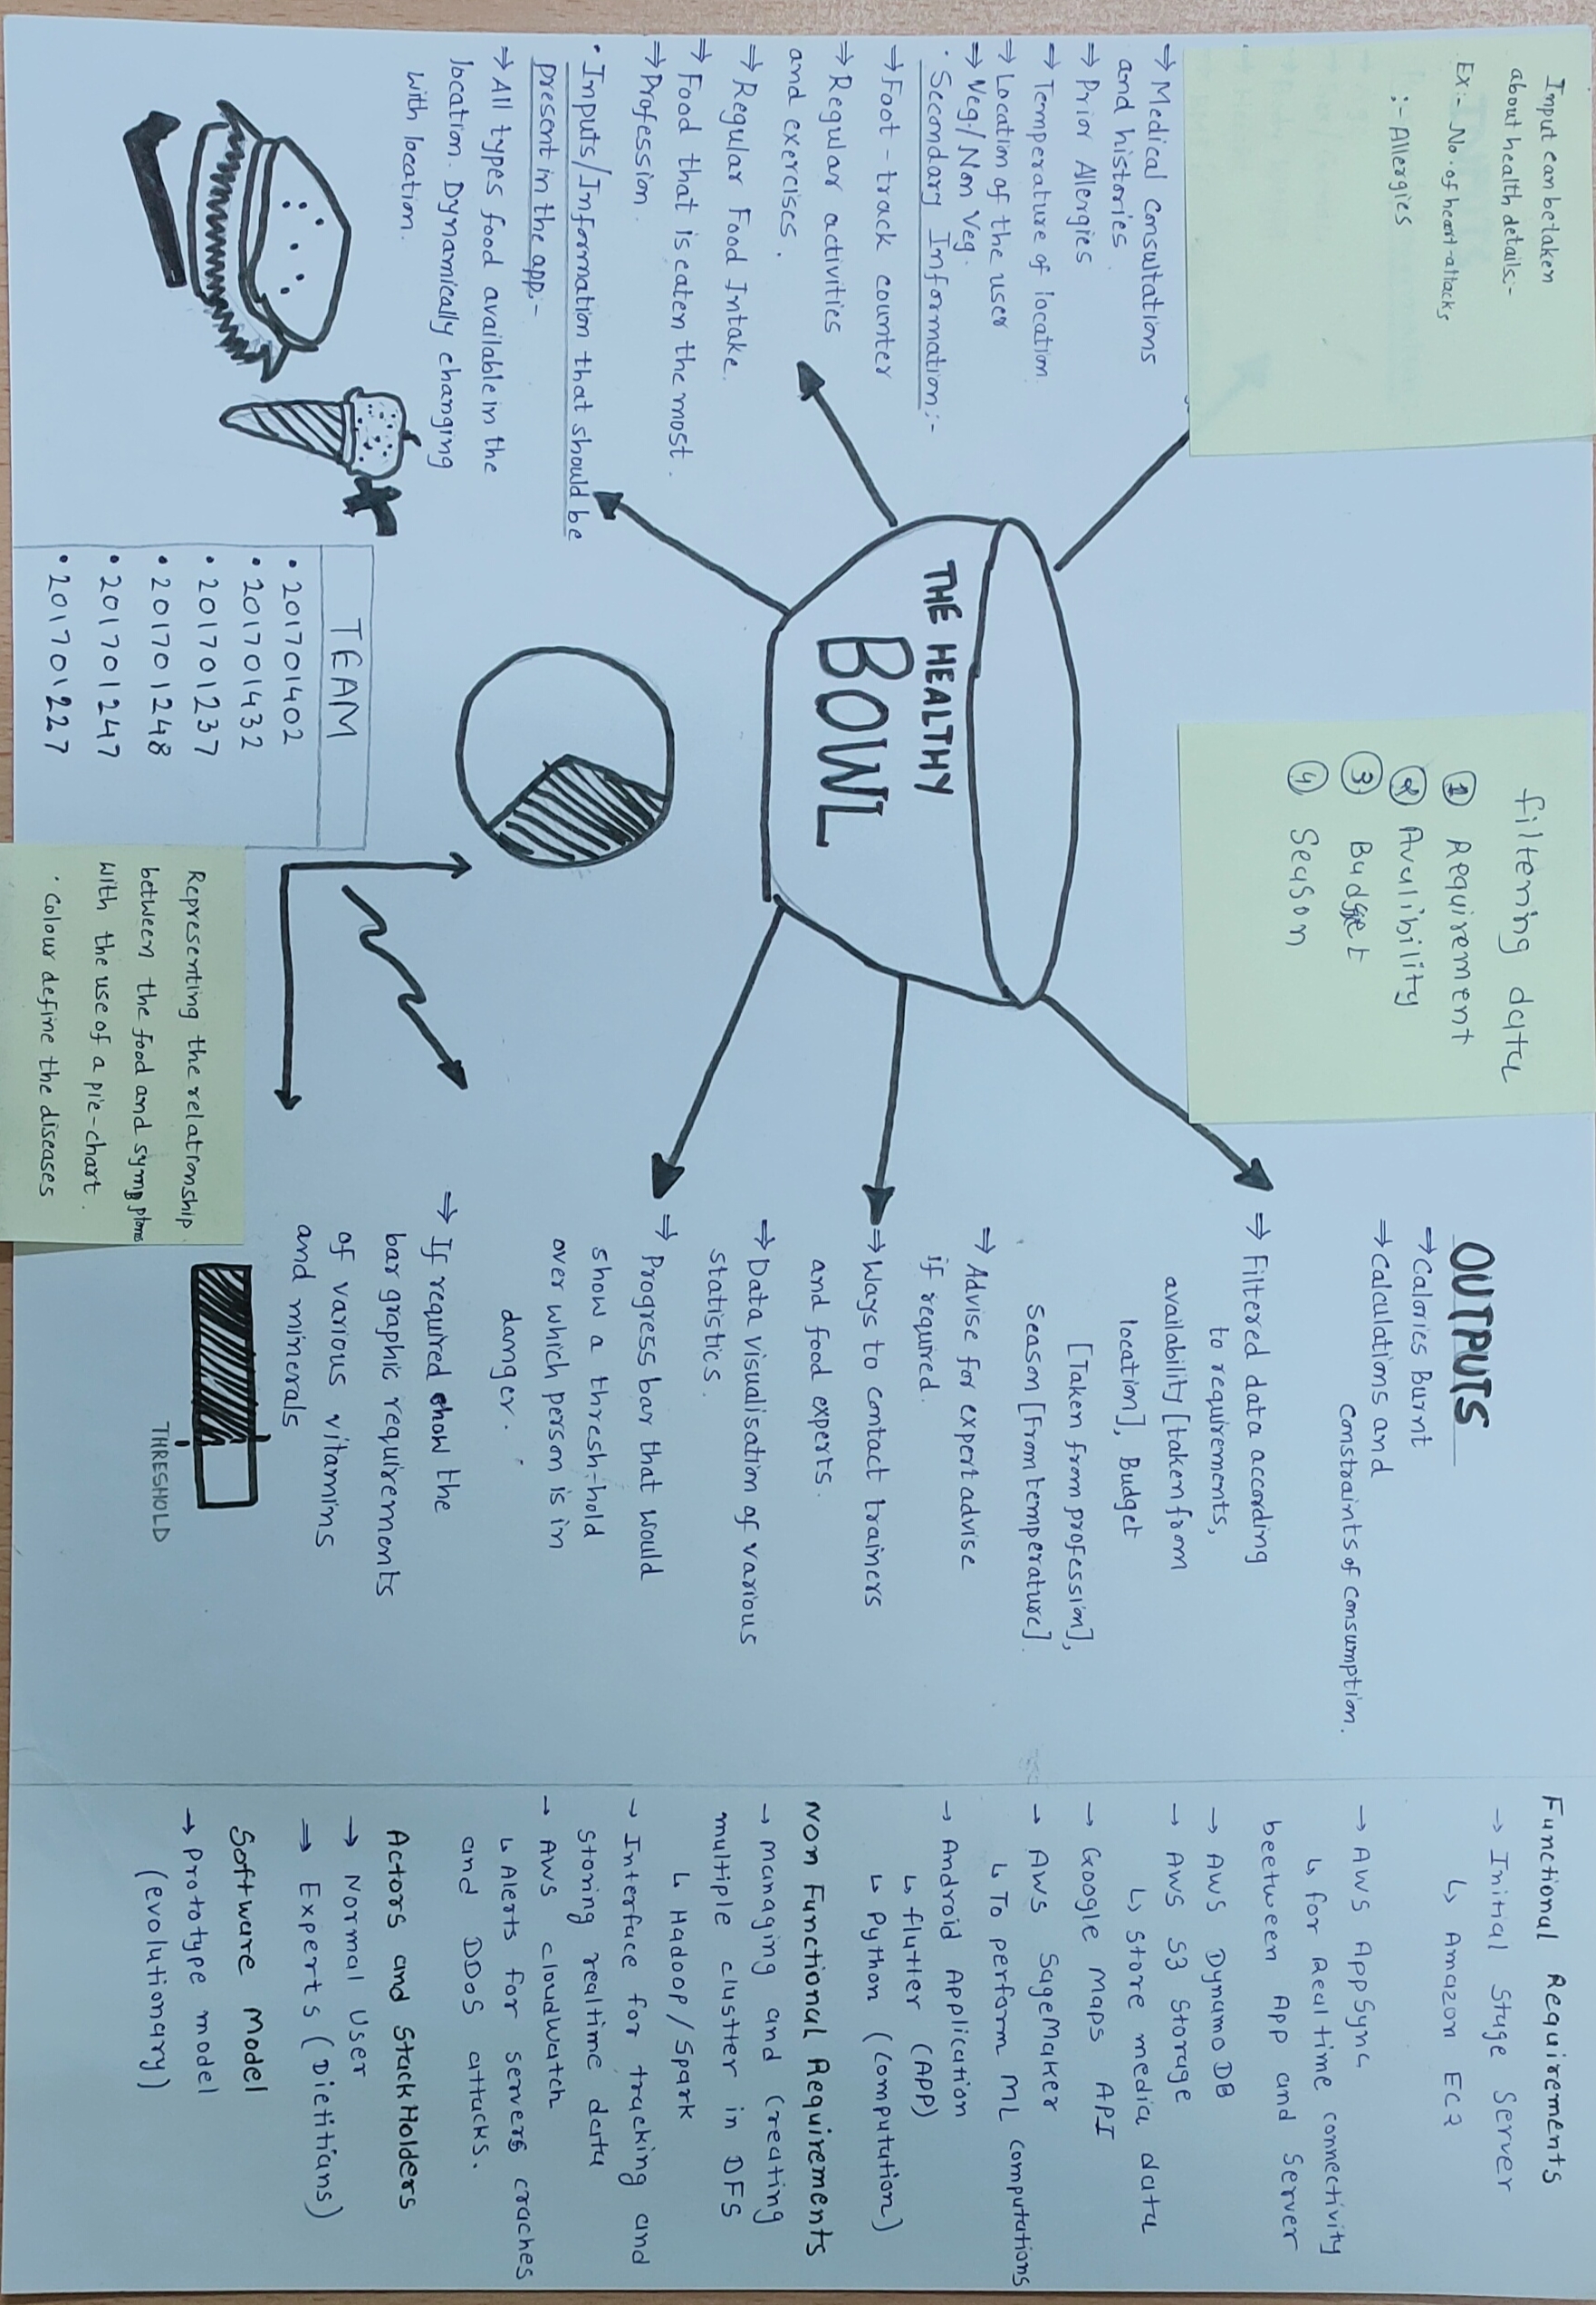 Input can be taken
about health details:-
Ex:- No. of heart-attacks
:- Allergies
⇒ Medical consultations
and histories.
⇒ Prior Allergies
⇒ Temperature of location
⇒ Location of the user
⇒ Veg./Non Veg.
· Secondary Information:-
⇒ Foot-track counter
⇒ Regular activities
and exercises.
⇒ Regular Food Intake.
⇒ Food that is eaten the most.
⇒ Profession.
· Inputs/Information that should be
present in the app:-
⇒ All types food available in the
location. Dynamically changing
with location.
THE HEALTHY
BOWL
TEAM
· 201701402
· 201701432
· 201701237
· 201701248
· 201701247
· 201701227
filtering data
① Requirement
② Avalibility
③ Budget
④ Season
Representing the relationship
between the food and symptoms
with the use of a pie-chart.
· Colour define the diseases
OUTPUTS
⇒ Calories Burnt
⇒ Calculations and
constraints of consumption.
⇒ Filtered data according
to requirements,
availability [taken from
location], Budget
[Taken from profession],
Season [From temperature].
⇒ Advise for expert advise
if required.
⇒ Ways to contact trainers
and food experts.
⇒ Data visualisation of various
statistics.
⇒ Progress bar that would
show a thresh-hold
over which person is in
danger.
⇒ If required show the
bar graphic requirements
of various vitamins
and minerals
THRESHOLD
Functional Requirements
→ Initial Stage Server
↳ Amazon EC2
→ AWS AppSync
↳ for Real time connectivity
beetween App and Server
→ AWS Dynamo DB
→ AWS S3 Storage
↳ Store media data
→ Google Maps API
→ AWS SageMaker
↳ To perform ML computations
→ Android Application
↳ flutter (APP)
↳ Python (Computation)
Non Functional Requirements
→ Managing and creating
multiple clustter in DFS
↳ Hadoop/Spark
→ Interface for tracking and
storing realtime data
→ AWS cloudwatch
↳ Alerts for servers craches
and DDoS attacks.
Actors and StackHolders
→ Normal User
→ Experts (Dietitians)
Software Model
→ Prototype model
(evolutionary)